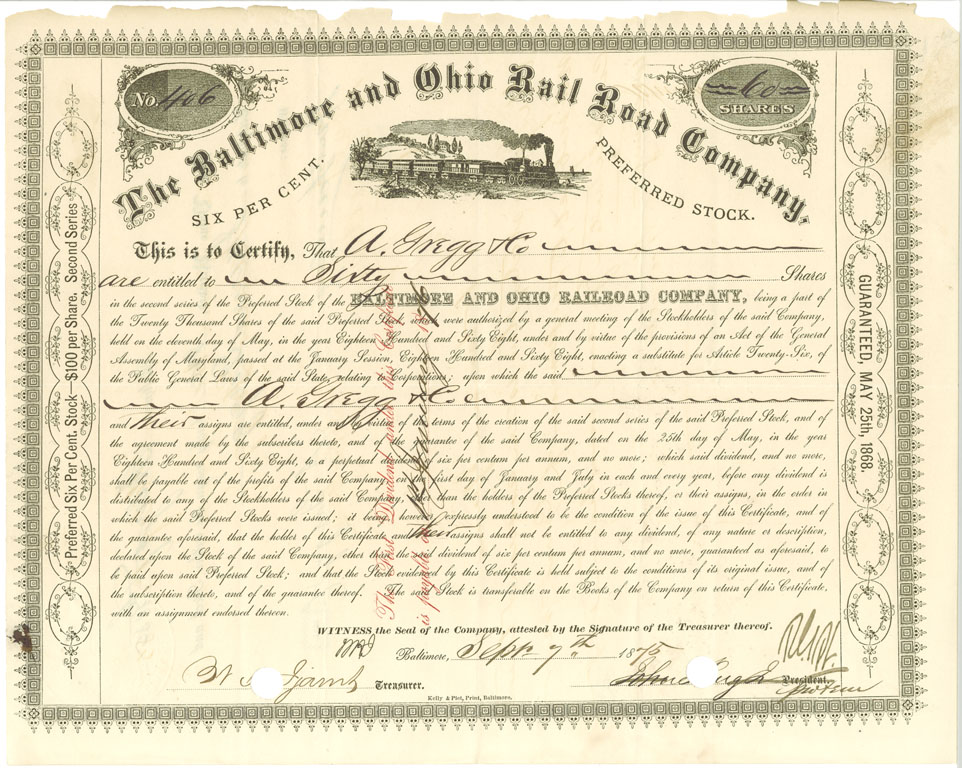 No. 406
60
SHARES
The Baltimore and Ohio Rail Road Company.
SIX PER CENT. PREFERRED STOCK.
This is to Certify, That A. Gregg & Co
are entitled to Sixty Shares
in the second series of the Preferred Stock of the BALTIMORE AND OHIO RAILROAD COMPANY, being a part of
the Twenty Thousand Shares of the said Preferred Stock, which were authorized by a general meeting of the Stockholders of the said Company,
held on the eleventh day of May, in the year Eighteen Hundred and Sixty Eight, under and by virtue of the provisions of an Act of the General
Assembly of Maryland, passed at the January Session, Eighteen Hundred and Sixty Eight, enacting a substitute for Article Twenty-Six, of
the Public General Laws of the said State, relating to Corporations; upon which the said
A. Gregg & Co
and their assigns are entitled, under and by virtue of the terms of the creation of the said second series of the said Preferred Stock, and of
the agreement made by the subscribers thereto, and of the guarantee of the said Company, dated on the 25th day of May, in the year
Eighteen Hundred and Sixty Eight, to a perpetual dividend of six per centum per annum, and no more; which said dividend, and no more,
shall be payable out of the profits of the said Company on first day of January and July in each and every year, before any dividend is
distributed to any of the Stockholders of the said Company, other than the holders of the Preferred Stocks thereof, or their assigns, in the order in
which the said Preferred Stocks were issued; it being, however expressly understood to be the condition of the issue of this Certificate, and of
the guarantee aforesaid, that the holder of this Certificate and their assigns shall not be entitled to any dividend, of any nature or description,
declared upon the Stock of the said Company, other than the said dividend of six per centum per annum, and no more, guaranteed as aforesaid, to
be paid upon said Preferred Stock; and that the Stock evidenced by this Certificate is held subject to the conditions of its original issue, and of
the subscription thereto, and of the guarantee thereof. The said Stock is transferable on the Books of the Company on return of this Certificate,
with an assignment endorsed thereon.
WITNESS the Seal of the Company, attested by the Signature of the Treasurer thereof.
Baltimore, Sept 7th 1875
Treasurer.
President.
Kelly & Piet, Print, Baltimore.
Preferred Six Per Cent. Stock $100 per Share. Second Series
GUARANTEED, MAY 25th, 1868.
The first Dividend under this Certificate
is payable